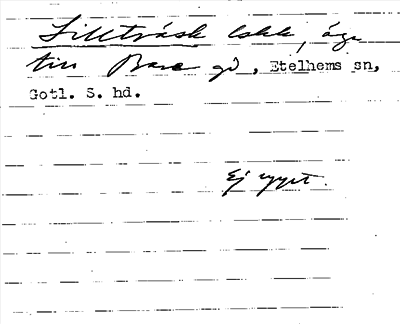 Lillträsk lokk, äga
till Bara gd, Etelhems sn,
Gotl. S. hd.
Ej uppt.